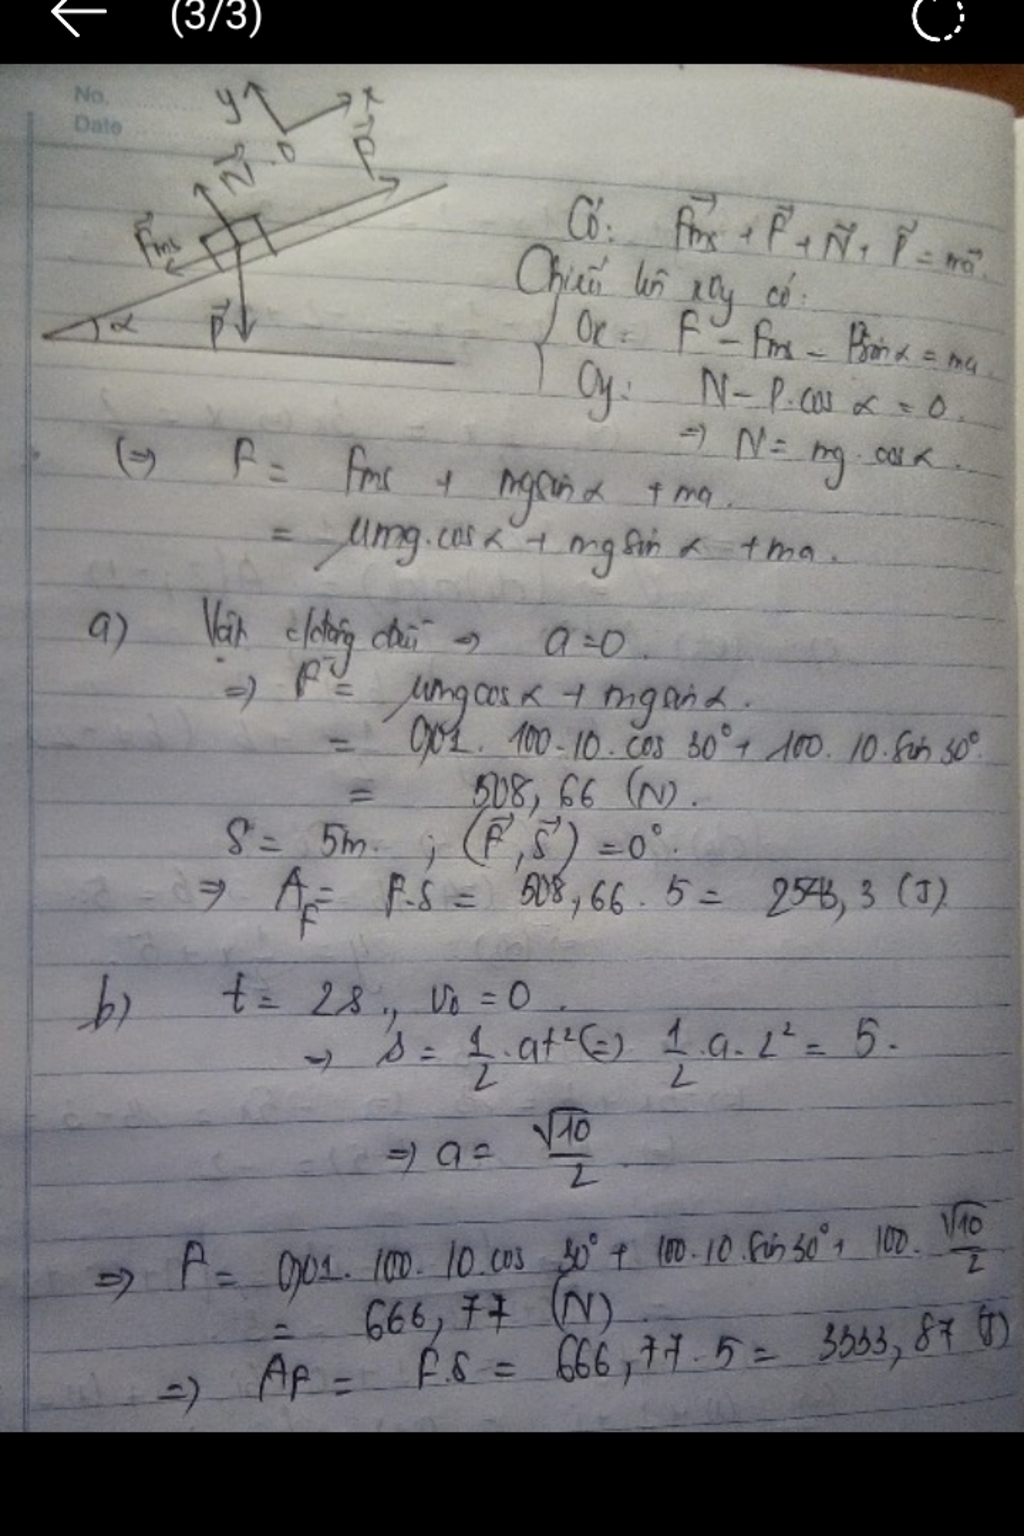 (3/3)
No.
Date
y x
O F⃗
N⃗
F⃗ms
α P⃗
Có: F⃗ms + F⃗ + N⃗ + P⃗ = ma⃗.
Chiếu lên xOy có:
Ox: F - Fms - Psinα = ma.
Oy: N - P.cos α = 0.
=> N = mg.cosα.
(=> F = Fms + mgsinα + ma.
= μmg.cosα + mgsin α + ma.
a) Vật cđộng đều => a=0.
=> F = μmgcosα + mgsinα.
= 0,01. 100.10.cos 30° + 100. 10.sin 30°
= 508,66 (N).
S = 5m. ; (F⃗,S⃗) = 0°.
=> A_F = F.S = 508,66.5 = 2543,3 (J)
b) t = 2s, v₀ = 0.
=> s = 1/2 . at² (=) 1/2 .a.2² = 5.
=> a = √10/2.
=> F = 0,01.100.10.cos 30° + 100.10.sin30° + 100. √10/2
= 666,77 (N)
=> A_F = F.S = 666,77.5 = 3333,87 (J)